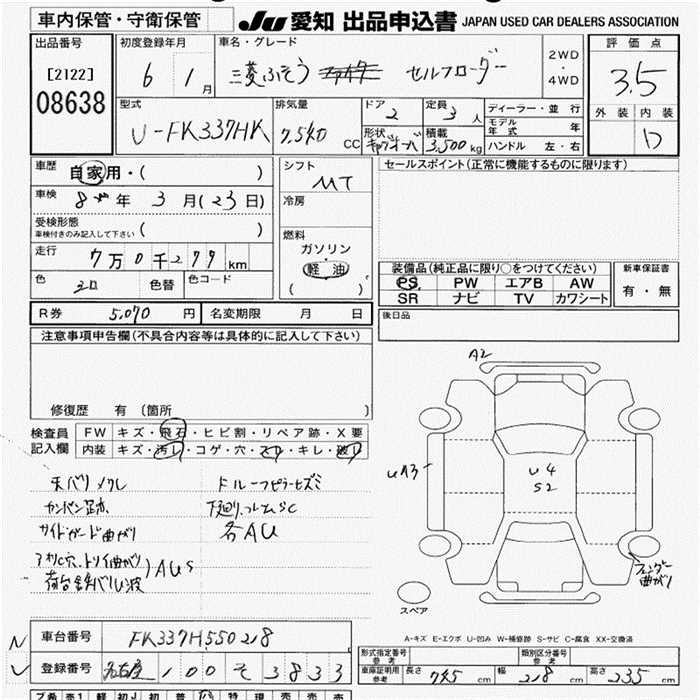 車内保管・守衛保管
JU 愛知 出品申込書 JAPAN USED CAR DEALERS ASSOCIATION
出品番号
[2122]
08638
初度登録年月
6 1月
車名・グレード
三菱ふそう セルフローダー
2WD
・
4WD
評価点
3.5
外装 内装
D
型式
U-FK337HK
排気量
7,540 CC
ドア
2
定員
3人
形状
積載
3,500 kg
ディーラー・並行
モデル年式 年
ハンドル 左・右
車歴
自家用・( )
車検
8 年 3月(23日)
受検形態
車検付きのみ記入して下さい ( )
走行
7万0千279km
色 色替 色コード
シフト
MT
冷房
燃料
ガソリン
軽油
( )
セールスポイント(正常に機能するものに限ります)
装備品(純正品に限り○をつけてください)
PS PW エアB AW
SR ナビ TV カワシート
新車保証書
有・無
R券 5,070円 名変期限 月 日
後日品
注意事項申告欄(不具合内容等は具体的に記入して下さい)
修復歴 有 (箇所 )
検査員
記入欄
FW キズ・飛石・ヒビ割・リペア跡・X要
内装 キズ・汚レ・コゲ・穴・スレ・キレ・破レ
サイドガード曲がり
各AU
AUS
A2
U A3
U4
S2
フェンダー曲がり
スペア
A-キズ E-エクボ U-凹み W-補修跡 S-サビ C-腐食 XX-交換済
車台番号 FK337H550218
登録番号 名古屋 100 そ 3833
形式指定番号
参考
類別区分番号
参考
車庫証明用
参考
長さ 745 cm 幅 218 cm 高さ 235 cm